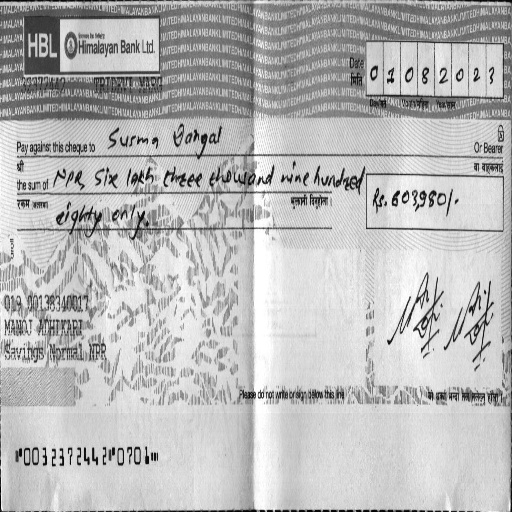 HBL Himalayan Bank Ltd.
Date 01082023
मिति
TRIDEVI MARG
Pay against this cheque to Susma Dangal Or Bearer
श्री वा वाहकलाई
the sum of NPR, Six lakh three thousand nine hundred
रकम अक्षरूपी भुक्तानी दिनुहोला। Rs. 603,980/-
eighty only.
019 00138340017
MANOJ ADHIKARI
Savings Normal NPR
Please do not write or sign below this line
⑈0032372442⑈0701⑈